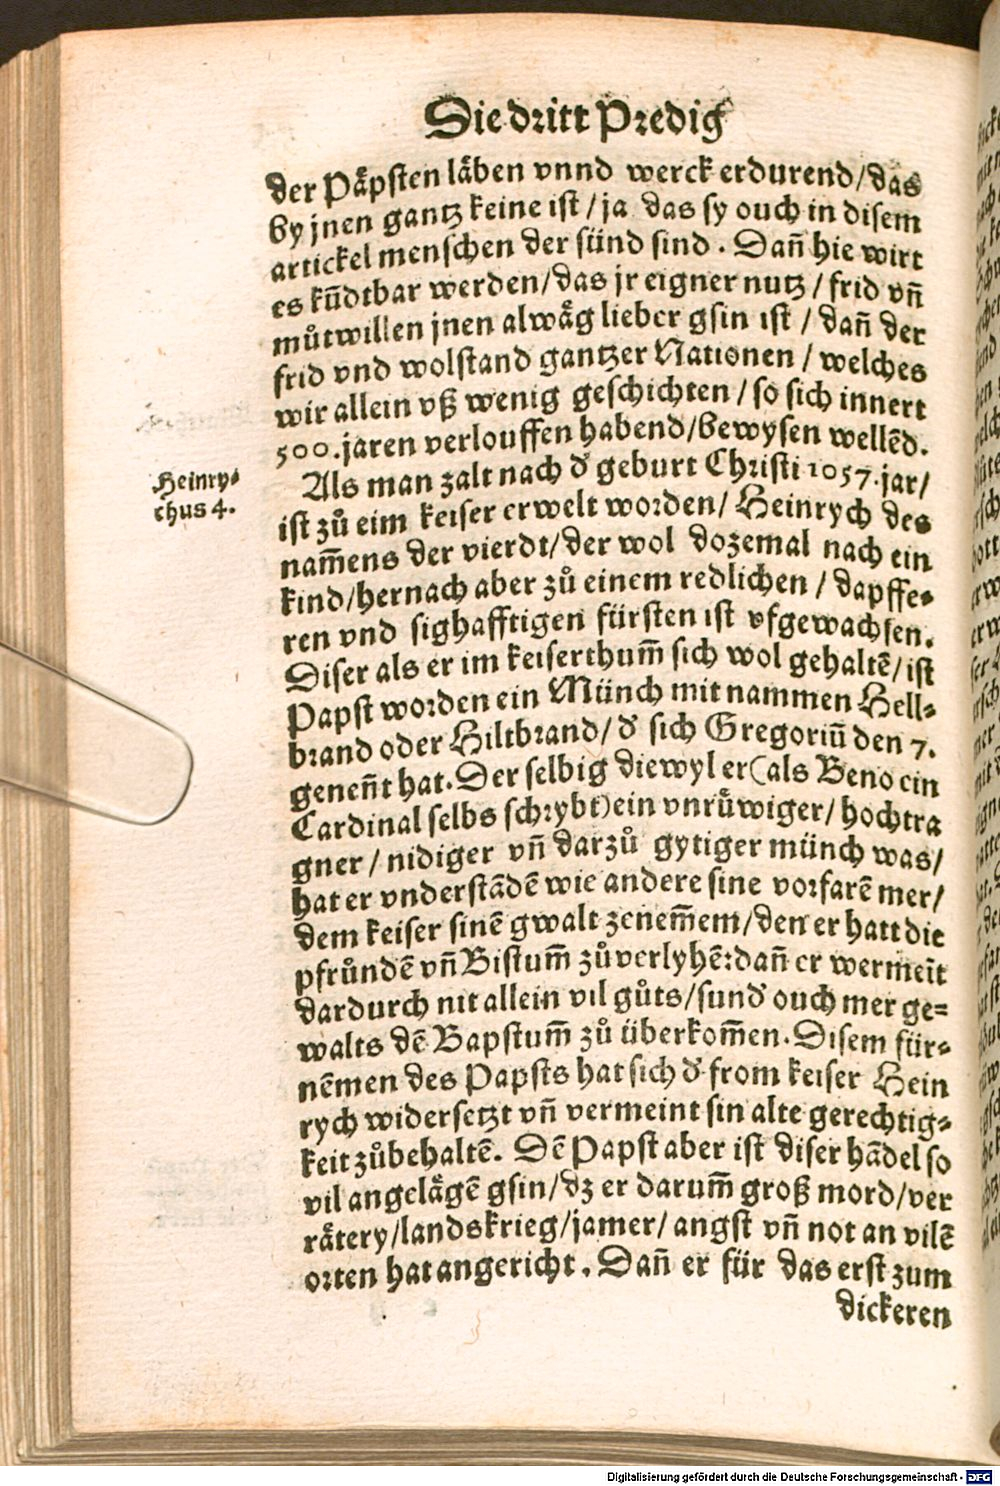 Die dritt Predig
der Paͤpsten laͤben vnnd werck erdurend/das
by jnen gantz keine ist/ja das sy ouch in disem
artickel menschen der sünd sind. Dañ hie wirt
es kūdtbar werden/das jr eigner nutz/frid vñ
muͦtwillen jnen alwaͤg lieber gsin ist/dañ der
frid vnd wolstand gantzer Nationen/welches
wir allein vß wenig geschichten/so sich innert
500.jaren verlouffen habend/bewysen wellēd.
Als man zalt nach d' geburt Christi 1057.jar/
Heinry-
chus 4.
ist zuͦ eim keiser erwelt worden/Heinrych des
nam̄ens der vierdt/der wol dozemal nach ein
kind/hernach aber zuͦ einem redlichen/dapffe-
ren vnd sighafftigen fürsten ist vfgewachsen.
Diser als er im keiserthum̄ sich wol gehaltē/ist
Papst worden ein Münch mit nammen Hell-
brand oder Hiltbrand/d' sich Gregoriū den 7.
geneñt hat. Der selbig diewyl er(als Beno ein
Cardinal selbs schrybt)ein vnruͤwiger/hochtra
gner/nidiger vñ darzuͦ gytiger münch was/
hat er vnderstādē wie andere sine vorfarē mer/
dem keiser sinē gwalt zenem̄em/den er hatt die
pfruͦndē vñ Bistum̄ zuͦverlyhē:dañ er wermeīt
dardurch nit allein vil guͦts/sund' ouch mer ge=
walts dē Bapstum̄ zuͦ überkom̄en. Disem für-
nēmen des Papsts hat sich d' from keiser Hein
rych widersetzt vñ vermeint sin alte gerechtig-
keit zuͦbehaltē. Dē Papst aber ist diser hādel so
vil angelaͤgē gsin/dz er darum̄ groß mord/ver
raͤtery/landskrieg/jamer/angst vñ not an vilē
orten hat angericht. Dañ er für das erst zum
dickeren
Digitalisierung gefördert durch die Deutsche Forschungsgemeinschaft - DFG